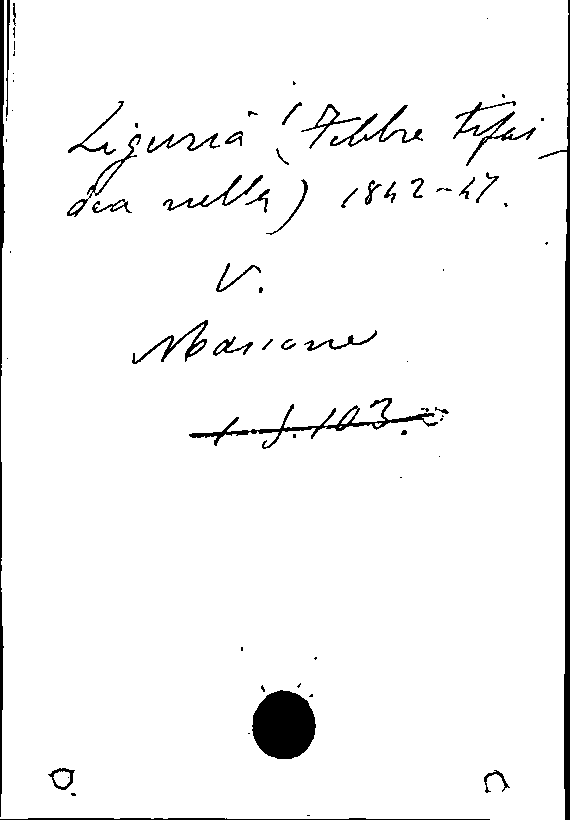 Liguria (Febbre tifoi-
dea nella) 1842-47.
V.
Masnone
1. J. 103.